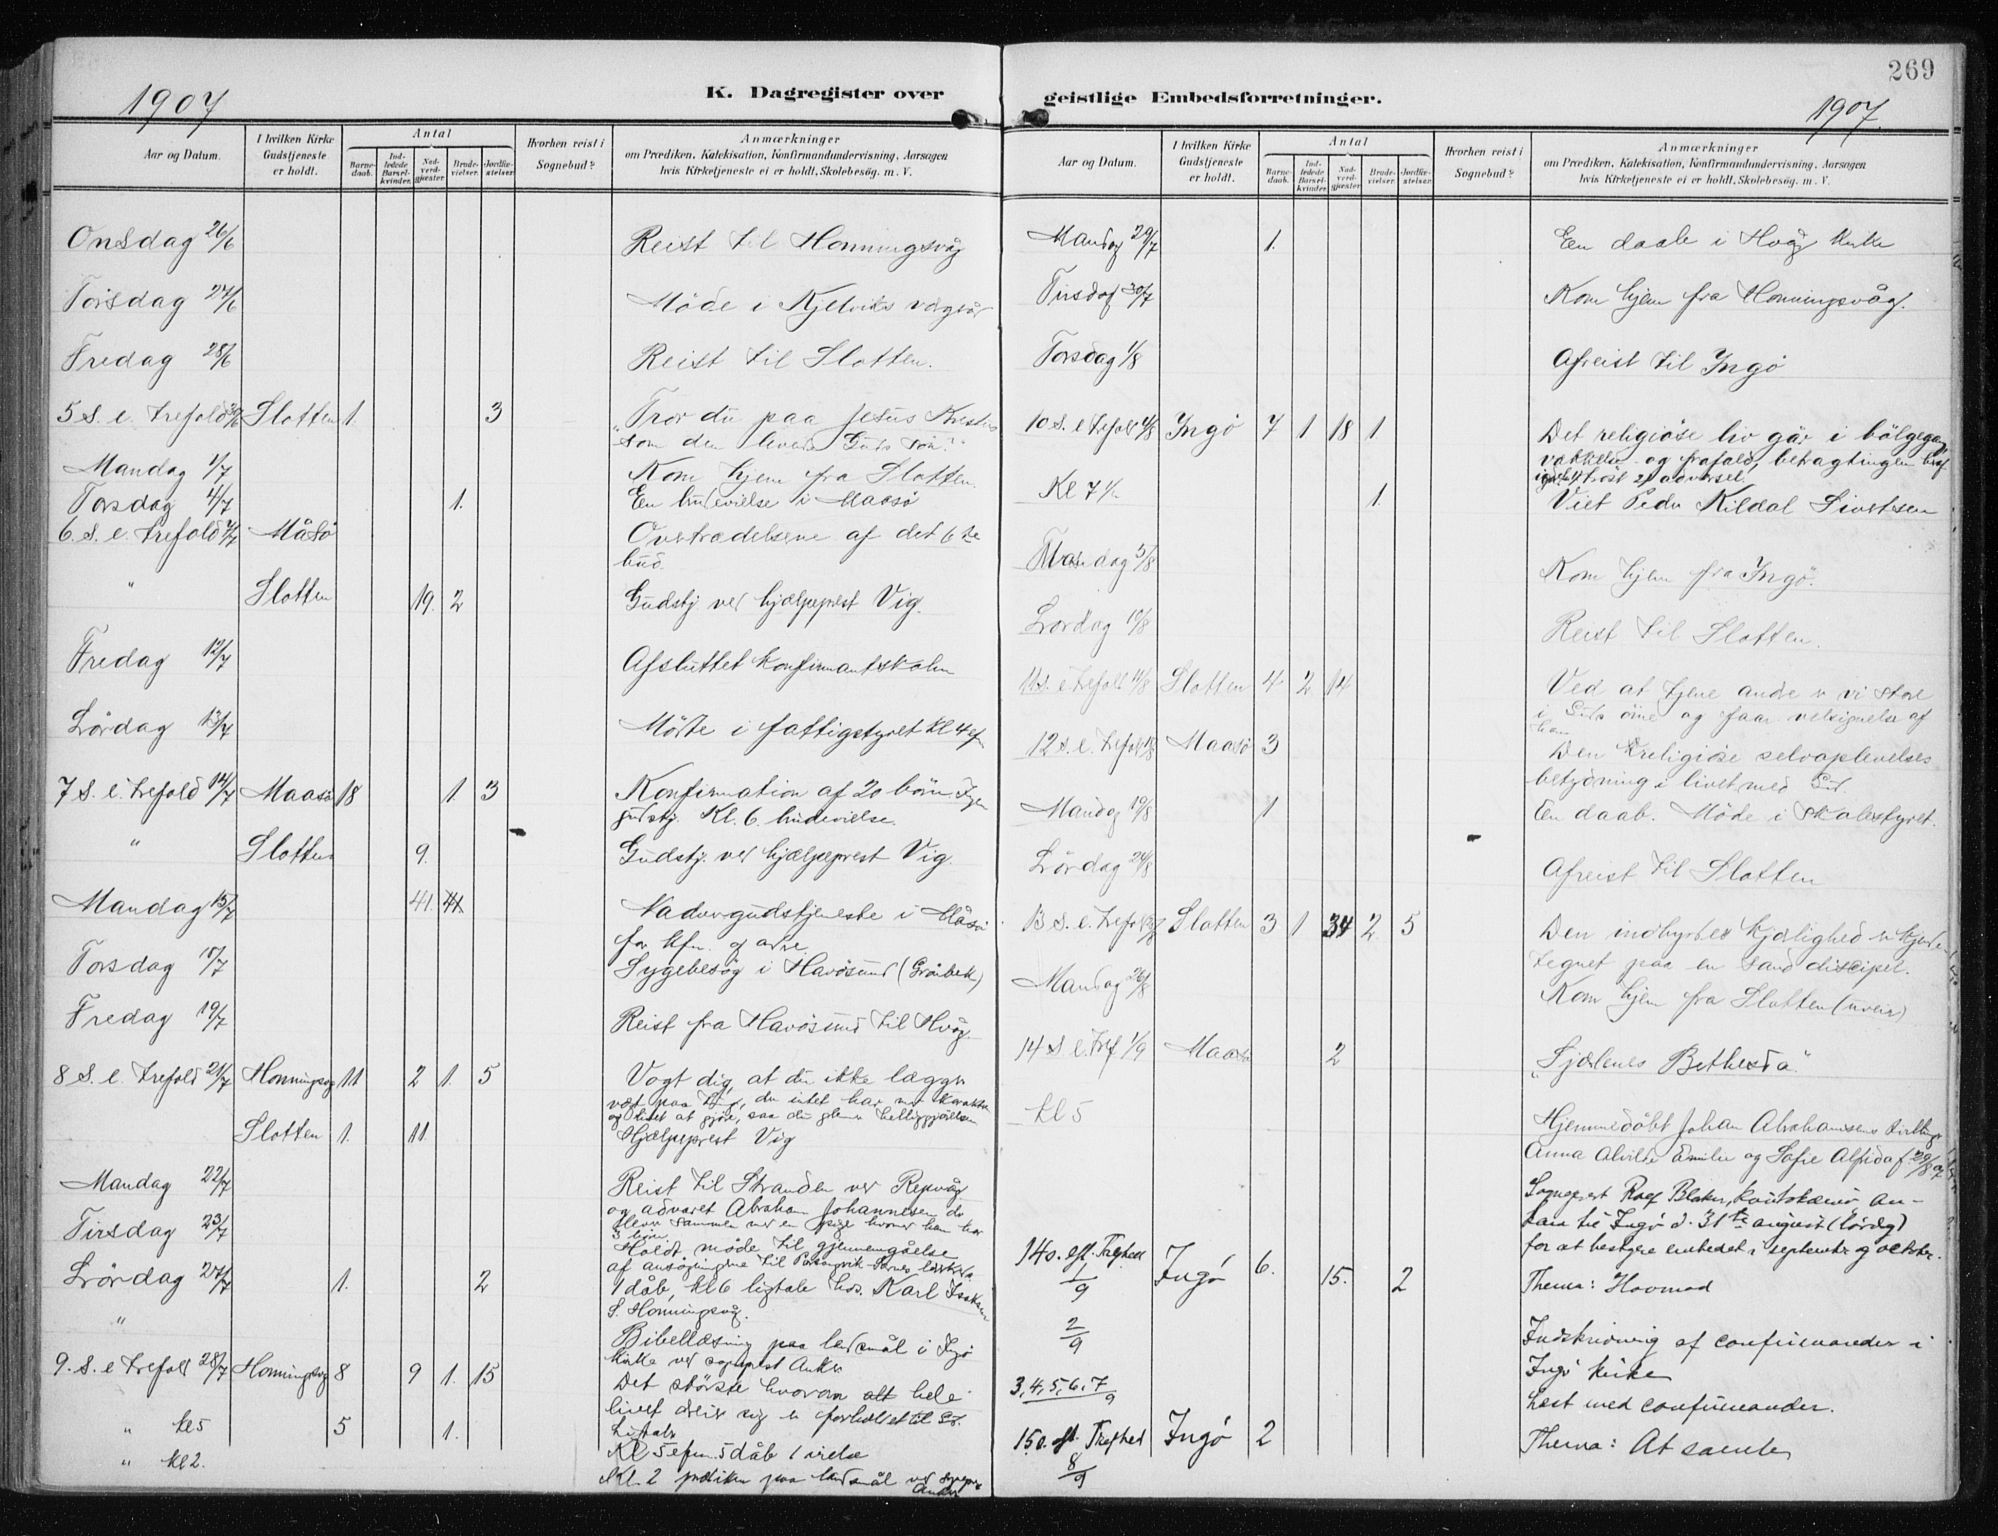 269
1907
K. Dagregister over
Aar og Datum.
I hvilken Kirke
Gudstjeneste
er holdt.
Antal
Barne-
daab.
Ind-
ledede
Barsel-
kvinder.
Nad-
verd-
gjæster
Brude-
vielser.
Jordfæ-
stelser.
Hvorhen reist i
Sognebud?
Anmærkninger
om Prædiken, Katekisation, Konfirmandundervisning, Aarsagen
hvis Kirketjeneste ei er holdt, Skolebesøg. m. V.
Onsdag 26/6 Reist til Honningsvåg
Torsdag 27/6 Møde i Kjelviks
Fredag 28/6 Reist til Slotten.
5 S. e. trefold 30/6 Slotten 1. 3 "Tror du paa Jesus Kristus
som den levende Guds søn?"
Mandag 1/7 Kom hjem fra Slotten.
Torsdag 4/7 1. En brudevielse i Maasø
6. S. e. trefold 7/7 Måsø Overtrædelserne af det 6te
bud.
" Slotten 19. 2 Gudstj. ved hjælpeprest Vig.
Fredag 12/7 Afsluttet konfirmantskolen
Lørdag 13/7 Møte i fattigstyret kl 4 ef
7 S. e. trefold 14/7 Maasø 18 1. 3 Konfirmation af 20 børn Ingen
gudstj. Kl. 6. brudevielse.
" Slotten 9. Gudstj. ved hjælpeprest Vig.
Mandag 15/7 41. 41. Nadvergudstjeneste i Måsø
for kfn. og andre
Torsdag 18/7 Sygebesøg i Havøsund (Grønbek)
Fredag 19/7 Reist fra Havøsund til Hvåg.
8 S. e. trefold 21/7 Honningsvg 11 2 1. 5 Vogt dig, at du ikke lægger
vægt paa du intet har
og intet at gjøre, saa du glemer helliggjørelsen
Slotten 1. 11 Hjælpeprest Vig
Mandag 22/7 Reist til Stranden ved Repvåg
og advaret Abraham Johannesen
sammen med en pige hvormed han har
3 børn.
Tirsdag 23/7 Holdt møde til gjennemgåelse
af ansøgningerne til
Lørdag 27/7 1. 2 1 dåb, kl 6 ligtale hos. Karl Isaksen
S. Honningsvåg.
" Bibellæsning paa landsmål i Ingø
kirke ved sogneprest Anker
9. S. e trefold 28/7 Honningsvg 8 9 1. 15 Det største hvorom alt hele
livet dreier sig er forholdet til Gd.
Ligtale
" kl 5 5 1. Kl 5 efm. 5 dåb 1 vielse
" kl 2. Kl. 2 prædiken paa landsmål ved sognepr.
Anker
geistlige Embedsforretninger.
1907.
Aar og Datum.
I hvilken Kirke
Gudstjeneste
er holdt.
Antal
Barne-
daab.
Ind-
ledede
Barsel-
kvinder
Nad-
verd-
gjæster
Brude-
vielser.
Jordfæ-
stelser.
Hvorhen reist i
Sognebud?
Anmærkninger
om Prædiken, Katekisation, Konfirmandundervisning, Aarsagen
hvis Kirketjeneste ei er holdt, Skolebesøg. m. V.
Mandag 29/7 1. En daab i Hvåg kirke
Tirsdag 30/7 Kom hjem fra Honningsvåg.
Torsdag 1/8 Afreist til Ingø
10 S. e trefold 4/8 Ingø 7 1 18 1 Det religiøse liv går i bølgegang,
vækkelse og frafald, betragtningen heraf
Kl 7 1. Viet Peder Kildal Sivertsen
Mandag 5/8 Kom hjem fra Ingø.
Lørdag 10/8 Reist til Slotten.
11 S. e trefold 11/8 Slotten 4 2 14 Ved at tjene andre er vi store
i Guds øine og faar velsignelse af
ham
12 S. e. trefold 18/8 Maasø 3 Den religiøse selvoplevelses
betydning i livet med Gud.
Mandag 19/8 1 En daab. Møde i skolestyret.
Lørdag 24/8 Afreist til Slotten
13 S. e. trefold 25/8 Slotten 3 1 34 2 5 Den indbyrdes kjærlighed er kjende-
tegnet paa en sand discipel.
Mandag 26/8 Kom hjem fra Slotten (uveir)
14 S. e. tref 1/9 Maasø 2 "Sjælenes Bethesda"
kl 5 Hjemmedøbt Johan Abrahamsens tvillinger
Anna Alvilde Emilie og Sofie Alfida f. 29/8 07
Sogneprest Roef Blaker, Kautokeino, an-
kom til Ingø d. 31te august (lørdag)
for at bestyre embedet i september og oktober.
14 s. eft. Trefhed 1/9 Ingø 6. 15. 2 Thema: Hovmod
2/9 Indskrivning af confirmander i
Ingø kirke
3, 4, 5, 6, 7/9 Læst med confirmander.
15 s. eft. Trefhed 8/9 Ingø 2 Thema: At samle